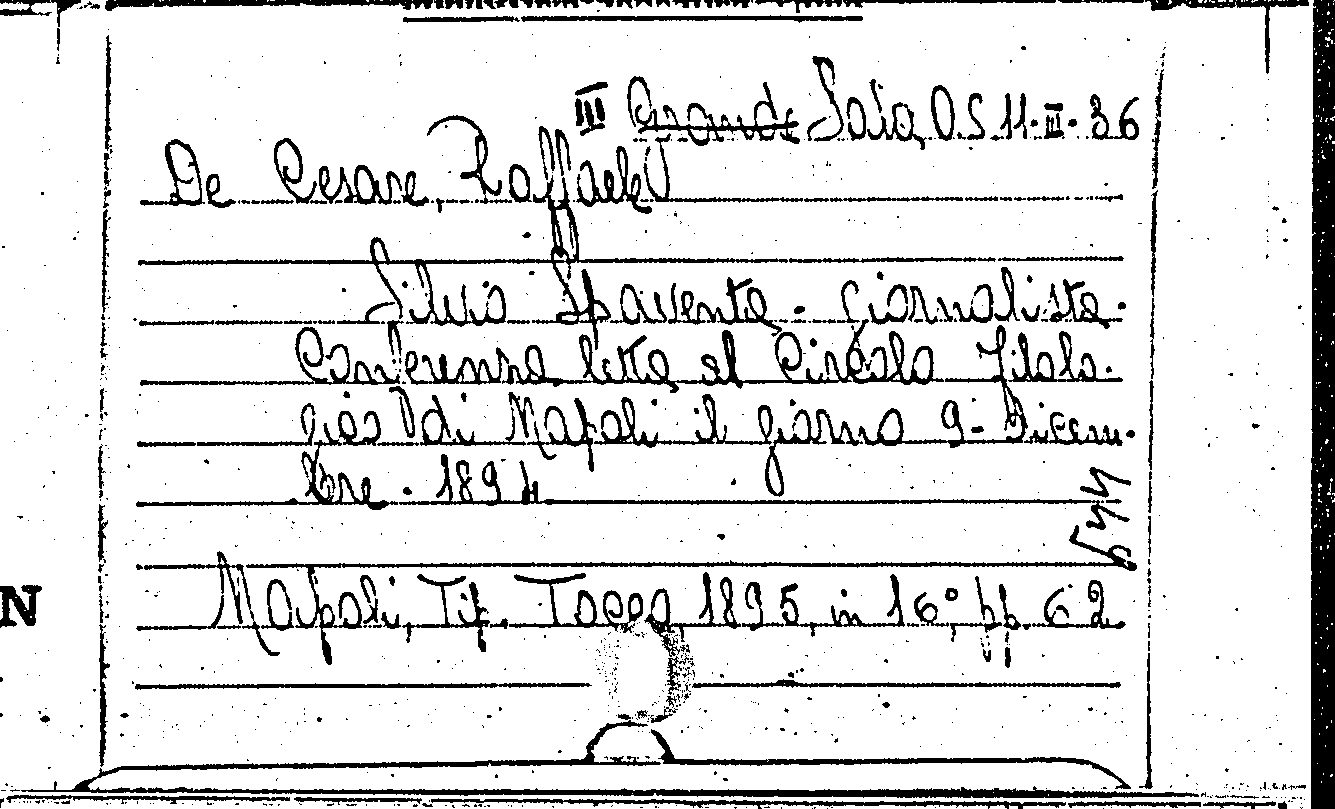 III Grande Sala O.S 11.III.36
De Cesare, Raffaele
Silvio Spaventa - giornalista.
Conferenza letta al Circolo Filolo-
gico di Napoli il giorno 9 - Dicem-
bre . 1894.
544
Napoli, Tip. Tocco, 1895, in 16°, pp. 62.
N